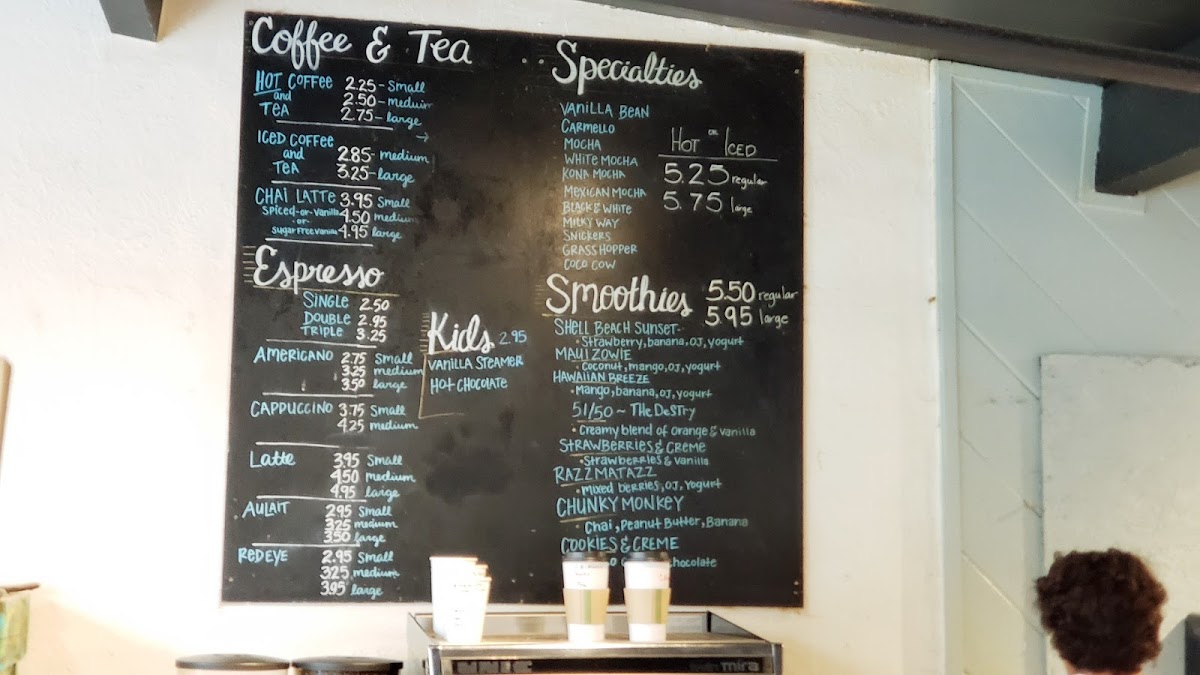 Coffee & Tea
HOT COFFEE 2.25 - small
and 2.50 - meduim
TEA 2.75 - large
ICED COFFEE
and 2.85 - medium
TEA 3.25 - large
CHAI LATTE 3.95 small
Spiced -or- Vanilla 4.50 medium
-or-
sugar free vanilla 4.95 large
Espresso
SINGLE 2.50
DOUBLE 2.95
TRIPLE 3.25
AMERICANO 2.75 small
3.25 medium
3.50 large
CAPPUCCINO 3.75 small
4.25 medium
Latte 3.95 small
4.50 medium
4.95 large
AULAIT 2.95 small
3.25 medium
3.50 large
REDEYE 2.95 small
3.25 medium
3.95 large
Kids 2.95
VANILLA STEAMER
HOT CHOCOLATE
Specialties
VANILLA BEAN
CARMELLO
MOCHA
WHITE MOCHA
KONA MOCHA
MEXICAN MOCHA
BLACK & WHITE
MILKY WAY
SNICKERS
GRASSHOPPER
COCO COW
HOT OR ICED
5.25 regular
5.75 large
Smoothies 5.50 regular
5.95 large
SHELL BEACH SUNSET
• Strawberry, banana, OJ, yogurt
MAUI ZOWIE
• Coconut, mango, OJ, yogurt
HAWAIIAN BREEZE
• Mango, banana, OJ, yogurt
51/50 ~ THE DESTRY
• Creamy blend of orange & vanilla
STRAWBERRIES & CREME
• Strawberries & vanilla
RAZZMATAZZ
• mixed berries, OJ, Yogurt
CHUNKY MONKEY
• Chai, Peanut Butter, Banana
COOKIES & CREME
chocolate
mira